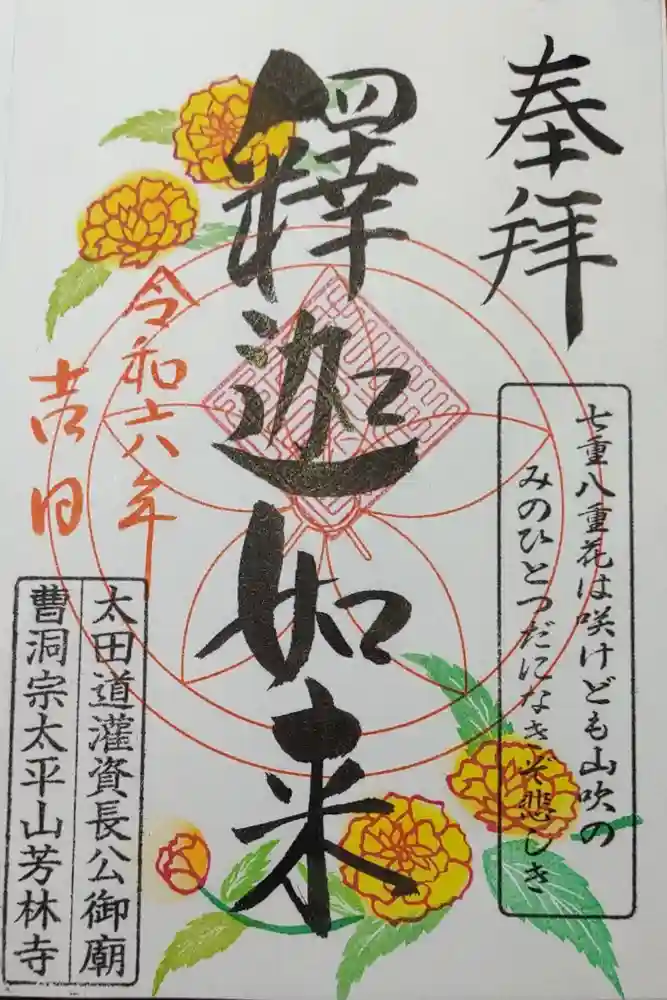 奉拝
七重八重花は咲けども山吹の
みのひとつだになきぞ悲しき
釋迦如来
令和六年
吉日
太田道灌資長公御廟
曹洞宗太平山芳林寺